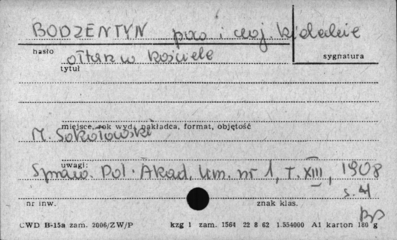 BODZENTYN pow i woj. kieleckie
hasło
sygnatura
ołtarz w kościele
tytuł
miejsce, rok wyd., nakładca, format, objętość
M. Sokołowski
uwagi:
Spraw. Pol. Akad. Um. nr 1, T. XIII, 1908
s. 4
nr inw.
znak klas.
CWD B-15a zam. 2006/ZW/P kzg 1 zam. 1564 22 8 62 1.554000 A1 karton 180 g